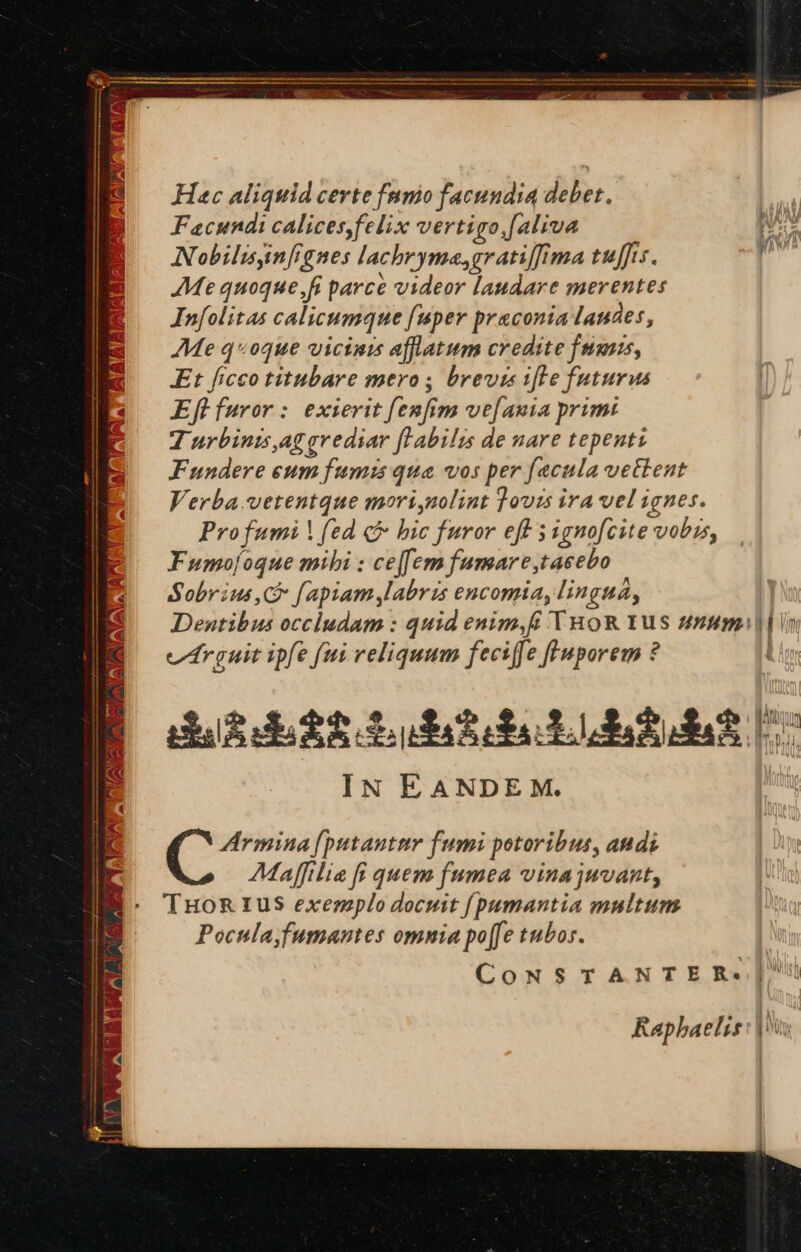 Hæc aliquid certe fumo facundia debet.
Facundi calices, felix vertigo, ſaliva
Nobilis, inſignes lachrymæ, gratiſſima tuſſis.
Me quoque, ſi parcè videor laudare merentes
Inſolitas calicumque ſuper præconia laudes,
Me quoque vicinis afflatum credite fumis,
Et ſicco titubare mero; brevis iſte futurus
Eſt furor: exierit ſenſim veſania primi
Turbinis, aggrediar ſtabilis de nare tepenti
Fundere cum fumis quæ vos per ſæcula vectent
Verba vetentque mori, nolint Jovis ira vel ignes.
Pro fumi! ſed & hic furor eſt; ignoſcite vobis,
Fumoſoque mihi: ceſſem fumare, tacebo
Sobrius, & ſapiam, labris encomia, linguâ,
Dentibus occludam: quid enim, ſi THORIUS unum
Arguit ipſe ſui reliquum feciſſe ſtuporem?
IN EANDEM.
CArmina ſputantur fumi potoribus, audi
Maſſiliæ ſi quem fumea vina juvant,
THORIUS exemplo docuit ſpumantia multum
Pocula, fumantes omnia poſſe tubos.
CONSTANTER.
Raphaelis